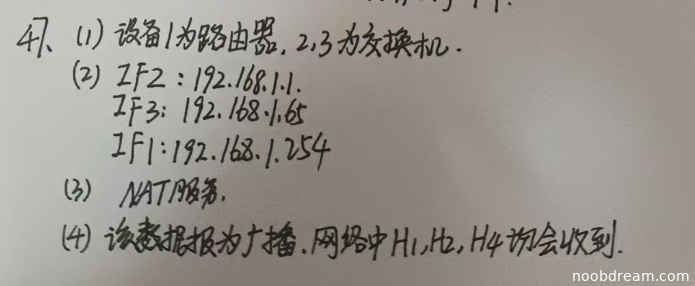 47、(1) 设备1为路由器, 2,3为交换机.
(2) IF2 : 192.168.1.1.
IF3: 192.168.1.65
IF1:192.168.1.254
(3) NAT服务.
(4) 该数据报为广播.网络中H1,H2,H4均会收到.
noobdream.com